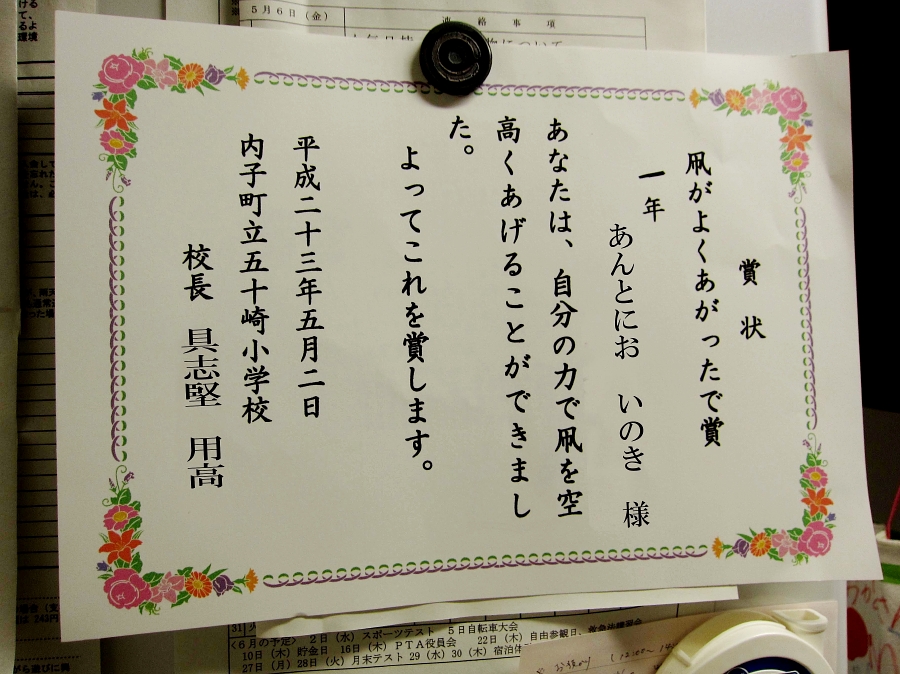 賞状
凧がよくあがったで賞
一年 あんとにお いのき 様
あなたは、自分の力で凧を空
高くあげることができまし
た。
よってこれを賞します。
平成二十三年五月二日
内子町立五十崎小学校
校長 具志堅 用高
5月6日(金)
連絡事項
<6月の予定> 2日(水)スポーツテスト 5日自転車大会
10日(木)貯金日 16日(木)PTA役員会 22日(木)自由参観日、
27日(月)28日(火)月末テスト29(水)30(木)宿泊体